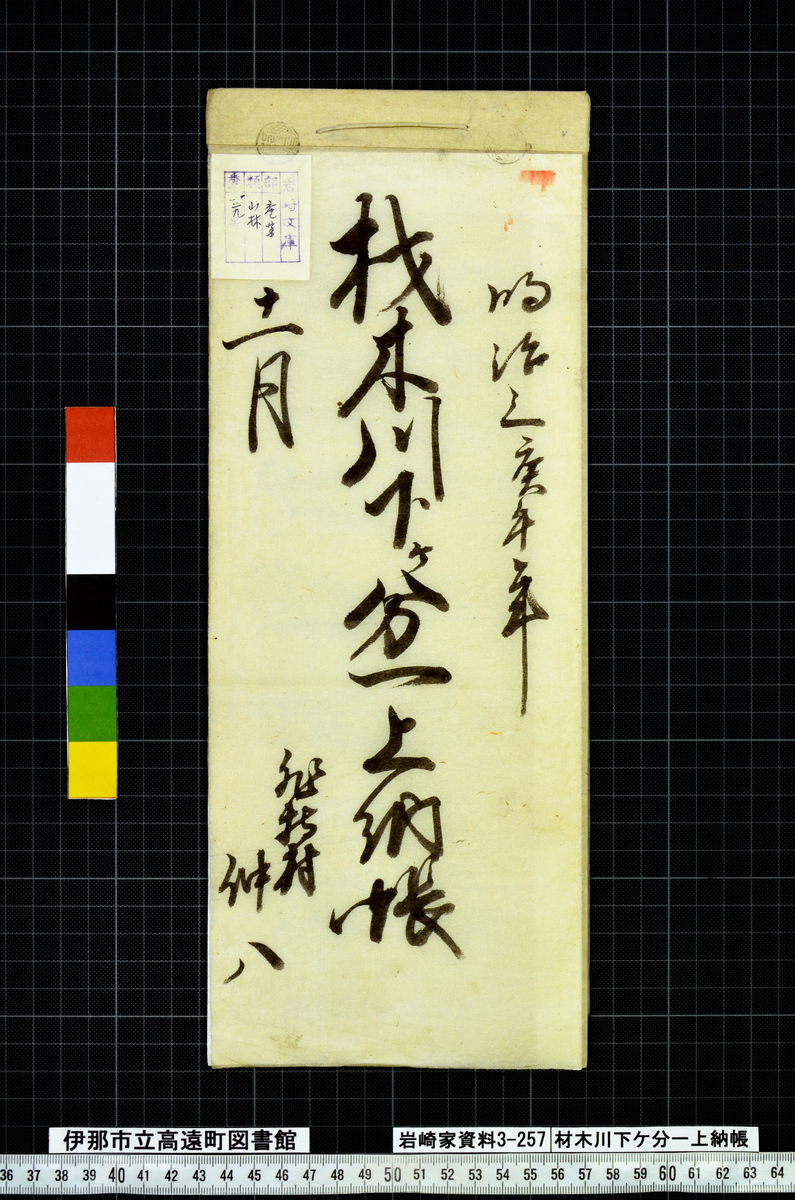 明治三庚午年
材木川下ケ分一上納帳
十一月
非持村
仲八
岩崎文庫
部 産業
類 山林
番 一二九
伊那市立高遠町図書館
岩崎家資料3-257
材木川下ケ分一上納帳
36 37 38 39 40 41 42 43 44 45 46 47 48 49 50 51 52 53 54 55 56 57 58 59 60 61 62 63 64